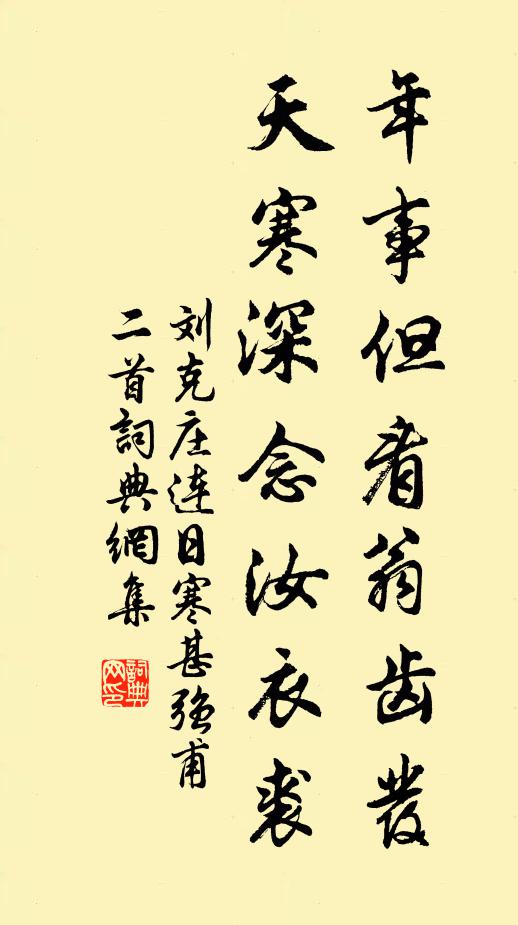 年事但看翁齿发
天寒深念汝衣裘
刘克庄连日寒甚强甫
二首詞典網集
詞典网印